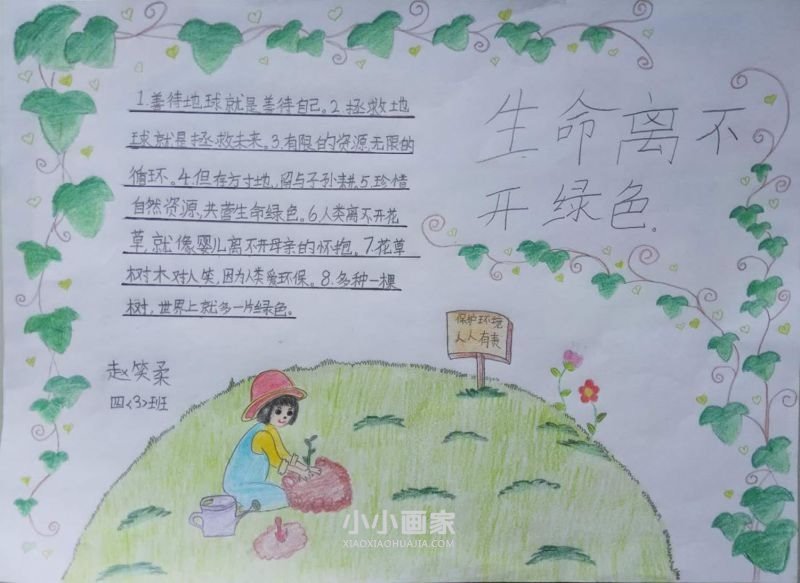 1.善待地球就是善待自己。2.拯救地
球就是拯救未来。3.有限的资源,无限的
循环。4.但存方寸地,留与子孙耕.5.珍惜
自然资源,共营生命绿色。6.人类离不开花
草,就像婴儿离不开母亲的怀抱。7.花草
树木对人笑,因为人类爱环保。8.多种一棵
树,世界上就多一片绿色。
生命离不
开绿色.
保护环境
人人有责
赵笑柔
四<3>班
小小画家
XIAOXIAOHUAJIA.COM